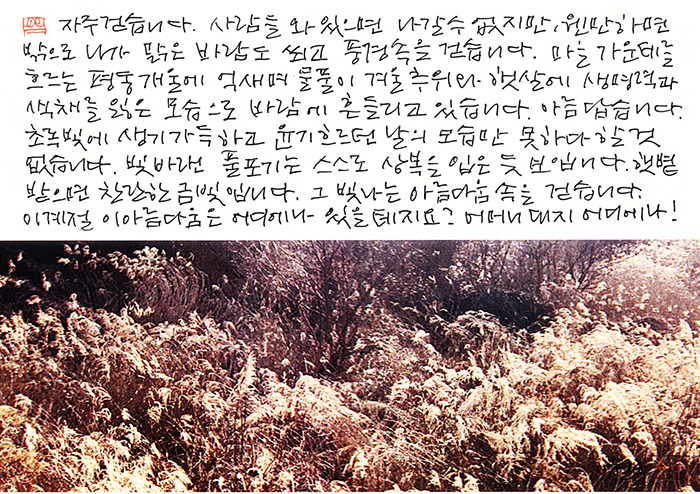 자주걷습니다. 사람들 와 있으면 나갈수 없지만, 웬만하면
밖으로 나가 맑은 바람도 쐬고 풍경속을 걷습니다. 마을 가운데를
흐르는 평동개울에 억새며 물풀이 겨울 추위와 햇살에 생명력과
색채를 잃은 모습으로 바람에 흔들리고 있습니다. 아름답습니다.
초록빛에 생기가득하고 윤기흐르던 날의 모습만 못하다 할 것
없습니다. 빛바랜 풀포기는 스스로 상복을 입은 듯 보입니다. 햇볕
받으면 찬란한 금빛입니다. 그 빛나는 아름다움 속을 걷습니다.
이계절 이아름다움은 어디에나 있을테지요? 어머니 대지 어디에나!